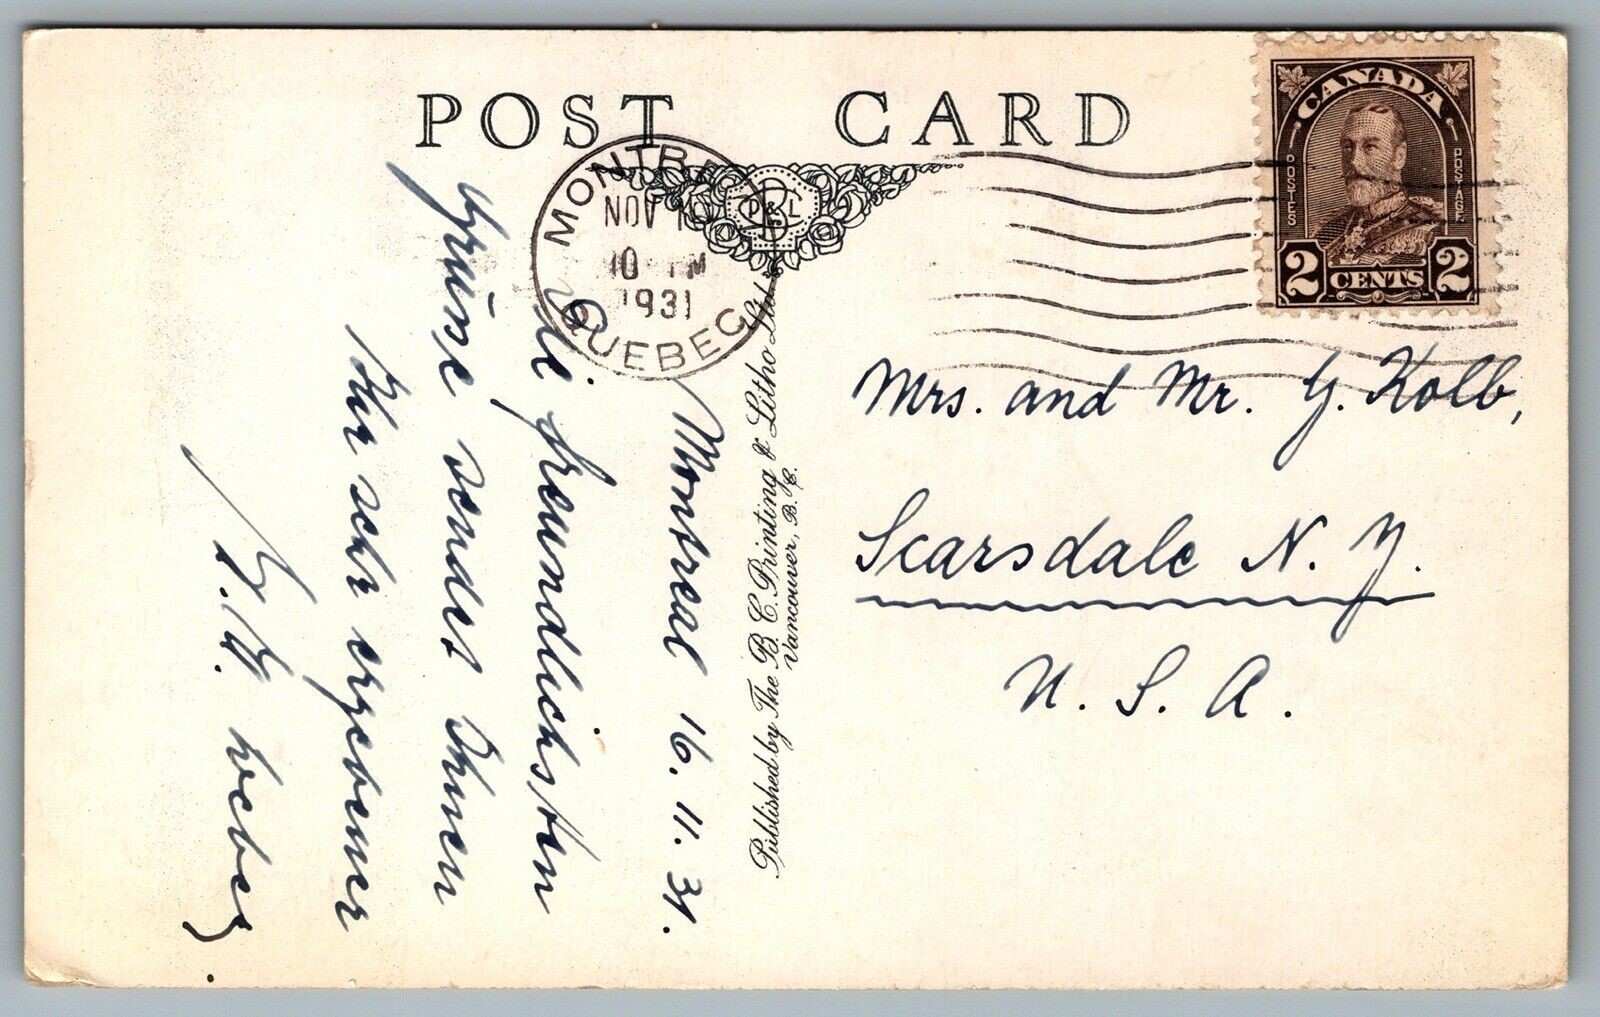 POST CARD
MONTRE
NOV 1
10 PM
1931
QUEBEC
CANADA
POSTES
POSTAGE
2 CENTS 2
B C
P & L
Published by The B. C. Printing & Litho Ltd.
Vancouver, B. C.
Montreal 16. 11. 31.
Die freundlichsten
Grüsse sendet Ihnen
Ihr sehr ergebener
Weber
Mrs. and Mr. G. Kolb,
Scarsdale N. Y.
U. S. A.